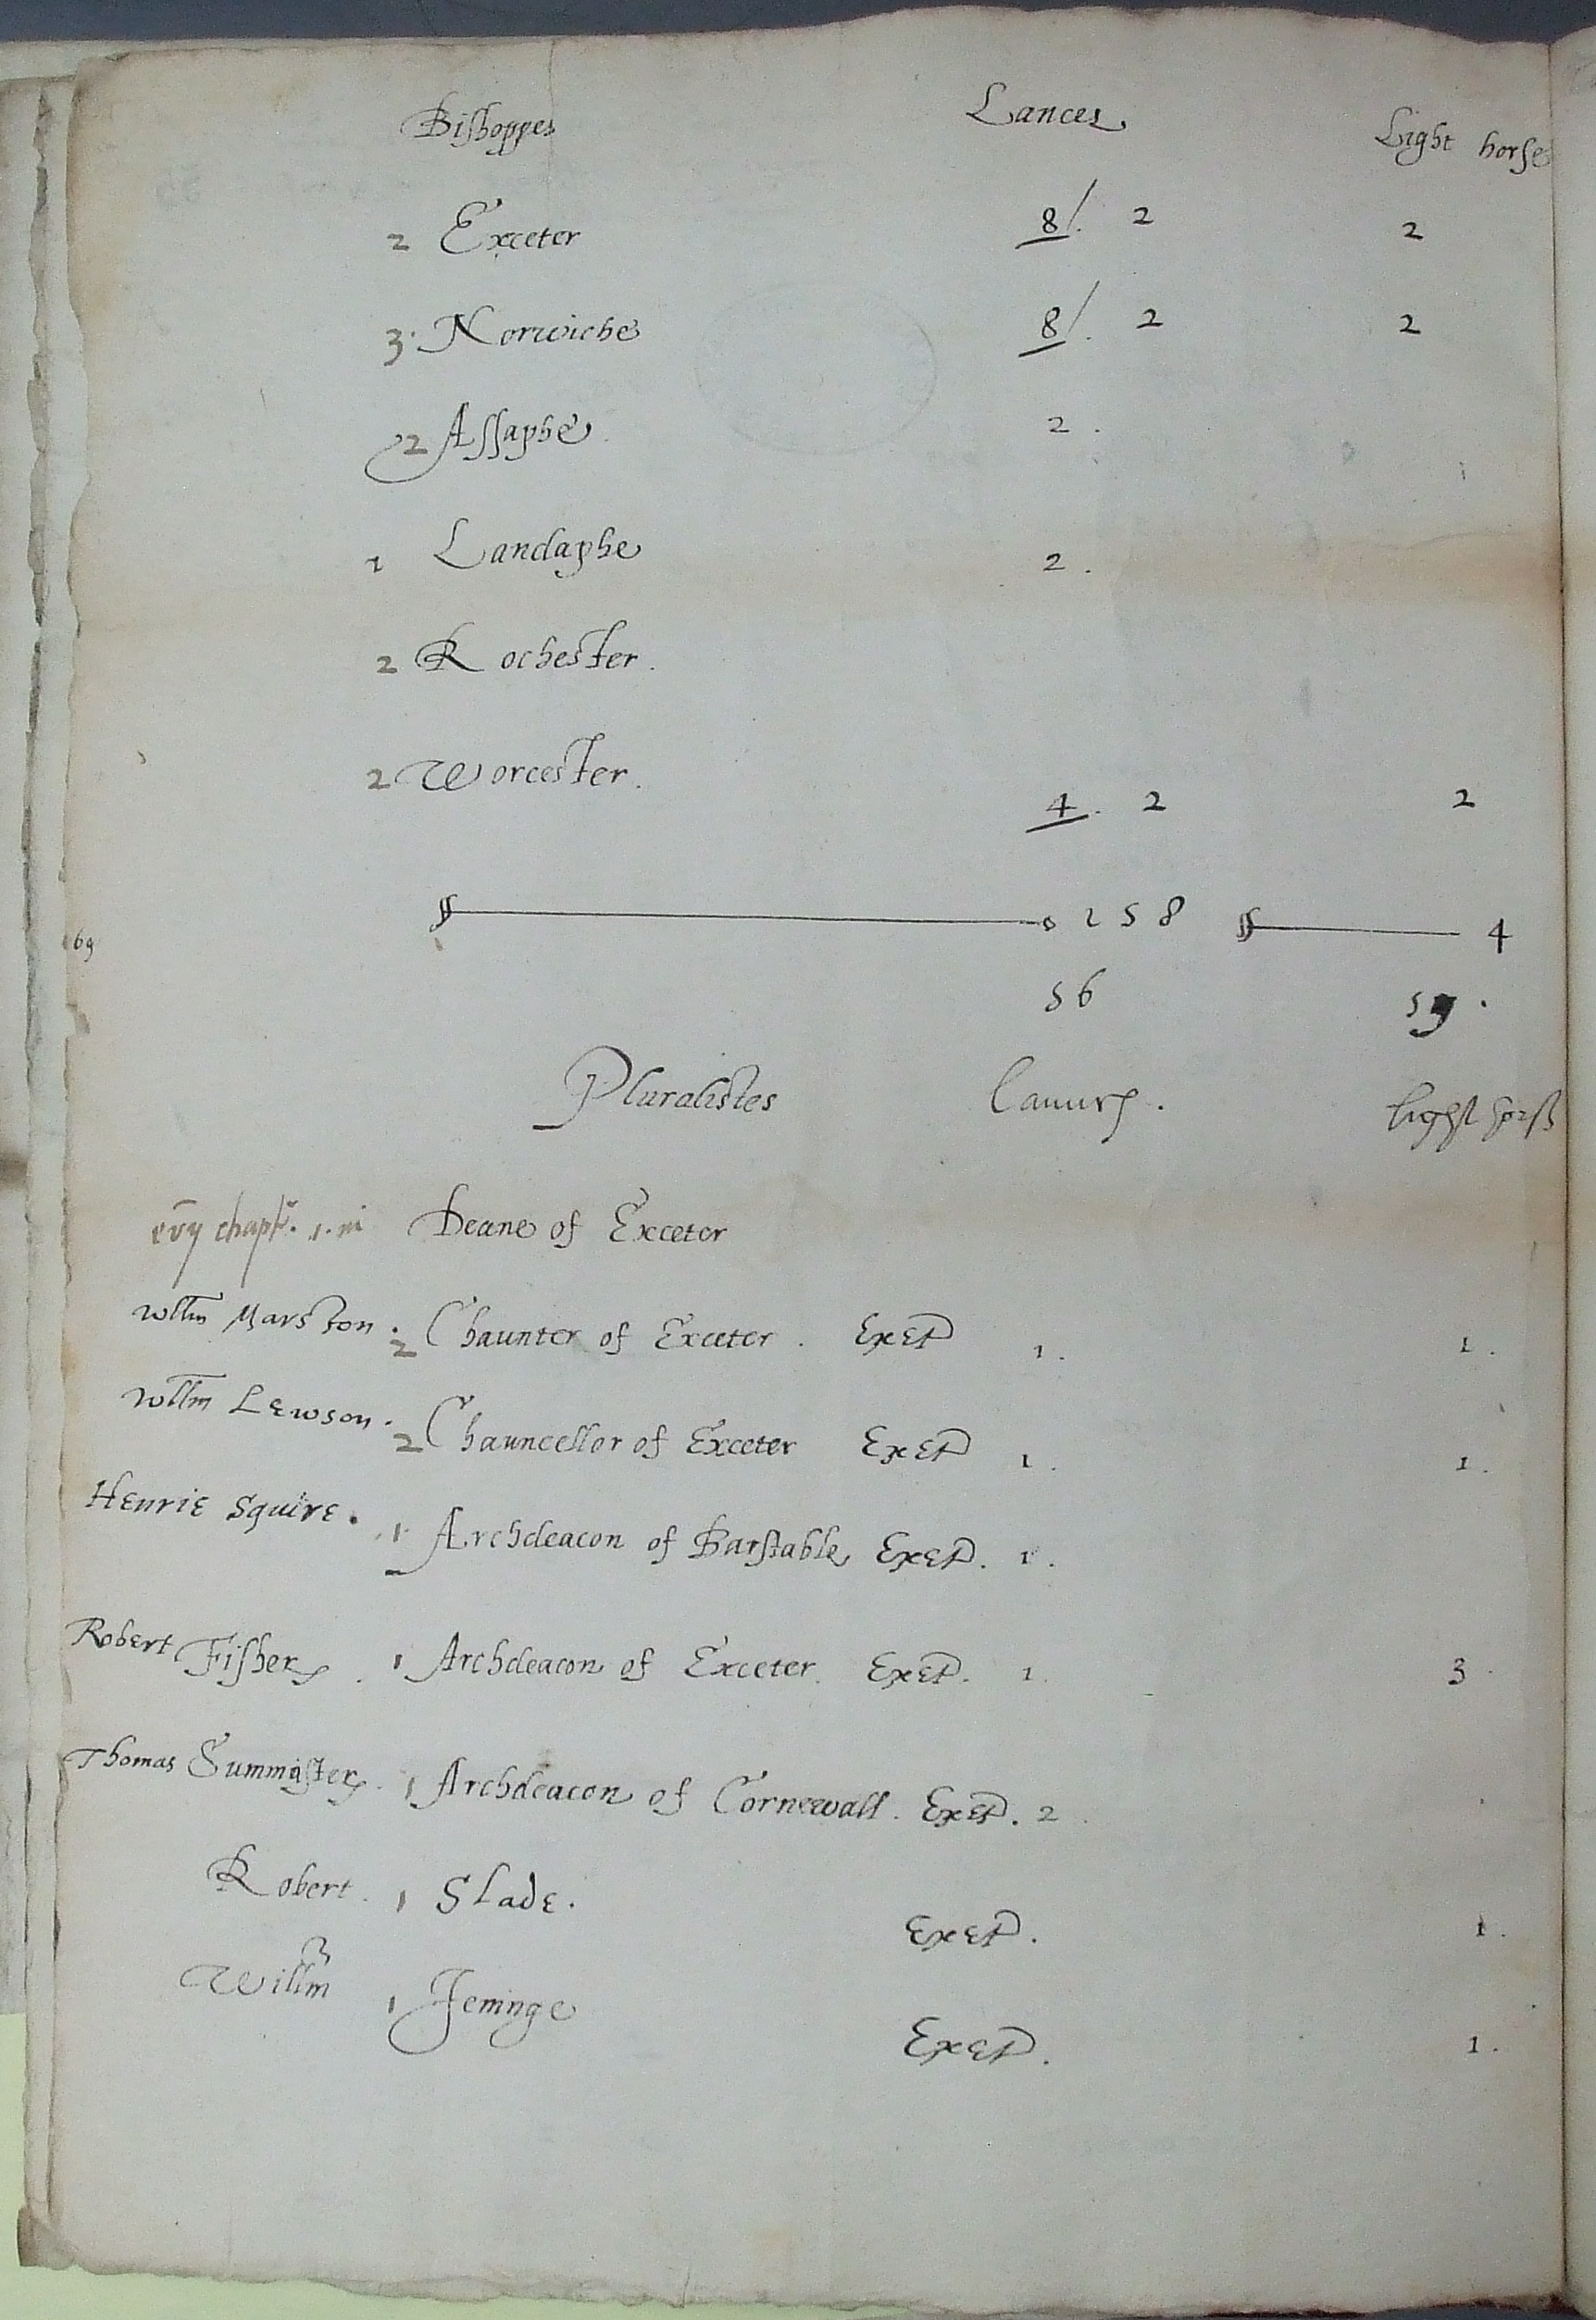 Bishoppes Lances Light horse
2 Exceter 8/. 2 2
3. Norwiche 8/. 2 2
2 Assaphe. 2.
1 Landaphe 2.
2 Rochester.
2 Worcester. 4. 2 2
158 4
69
56 59.
Pluralistes Launces. light horse
evy chapt. 1. m Deane of Exceter
Willm Marston. 2 Chaunter of Exceter. Exet 1. 1.
Willm Lewson. 2 Chauncellor of Exceter Exet 1. 1.
Henrie Squire. 1 Archdeacon of Barstable Exet. 1.
Robert Fisher. 1 Archdeacon of Exceter. Exet. 1. 3.
Thomas Summaster. 1 Archdeacon of Cornewall. Exet. 2
Robert. 1 Slade. Exet. 1.
Willm 1 Jeninge Exet. 1.